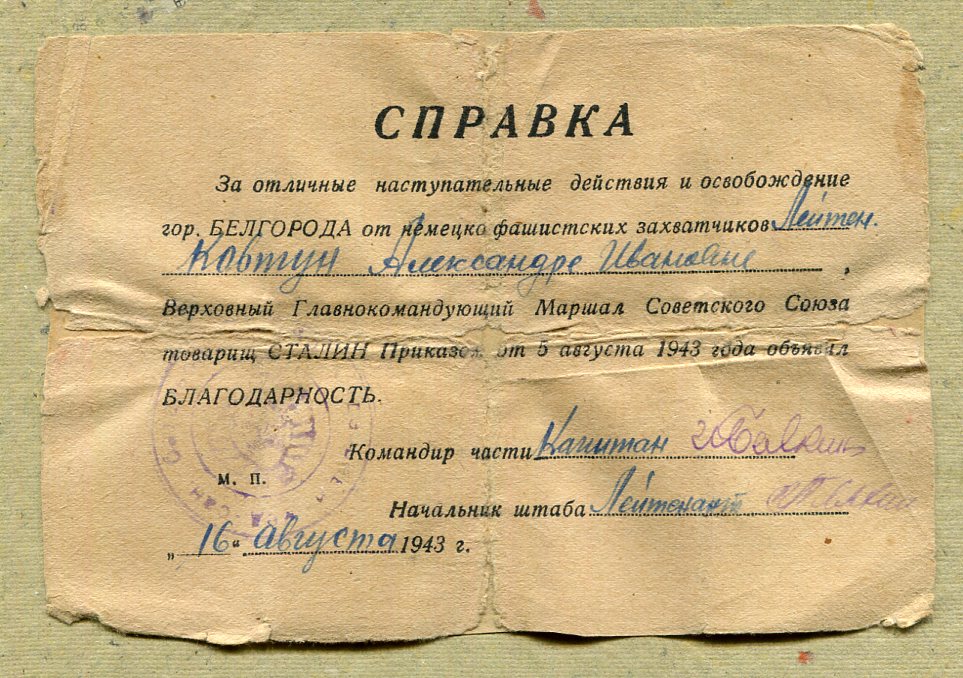 СПРАВКА
За отличные наступательные действия и освобождение
гор. БЕЛГОРОДА от немецко фашистских захватчиков Лейтен.
Ковтун Александре Ивановне,
Верховный Главнокомандующий Маршал Советского Союза
товарищ СТАЛИН Приказом от 5 августа 1943 года объявил
БЛАГОДАРНОСТЬ.
Командир части Капитан
М. П.
Начальник штаба Лейтенант
„16“ Августа 1943 г.